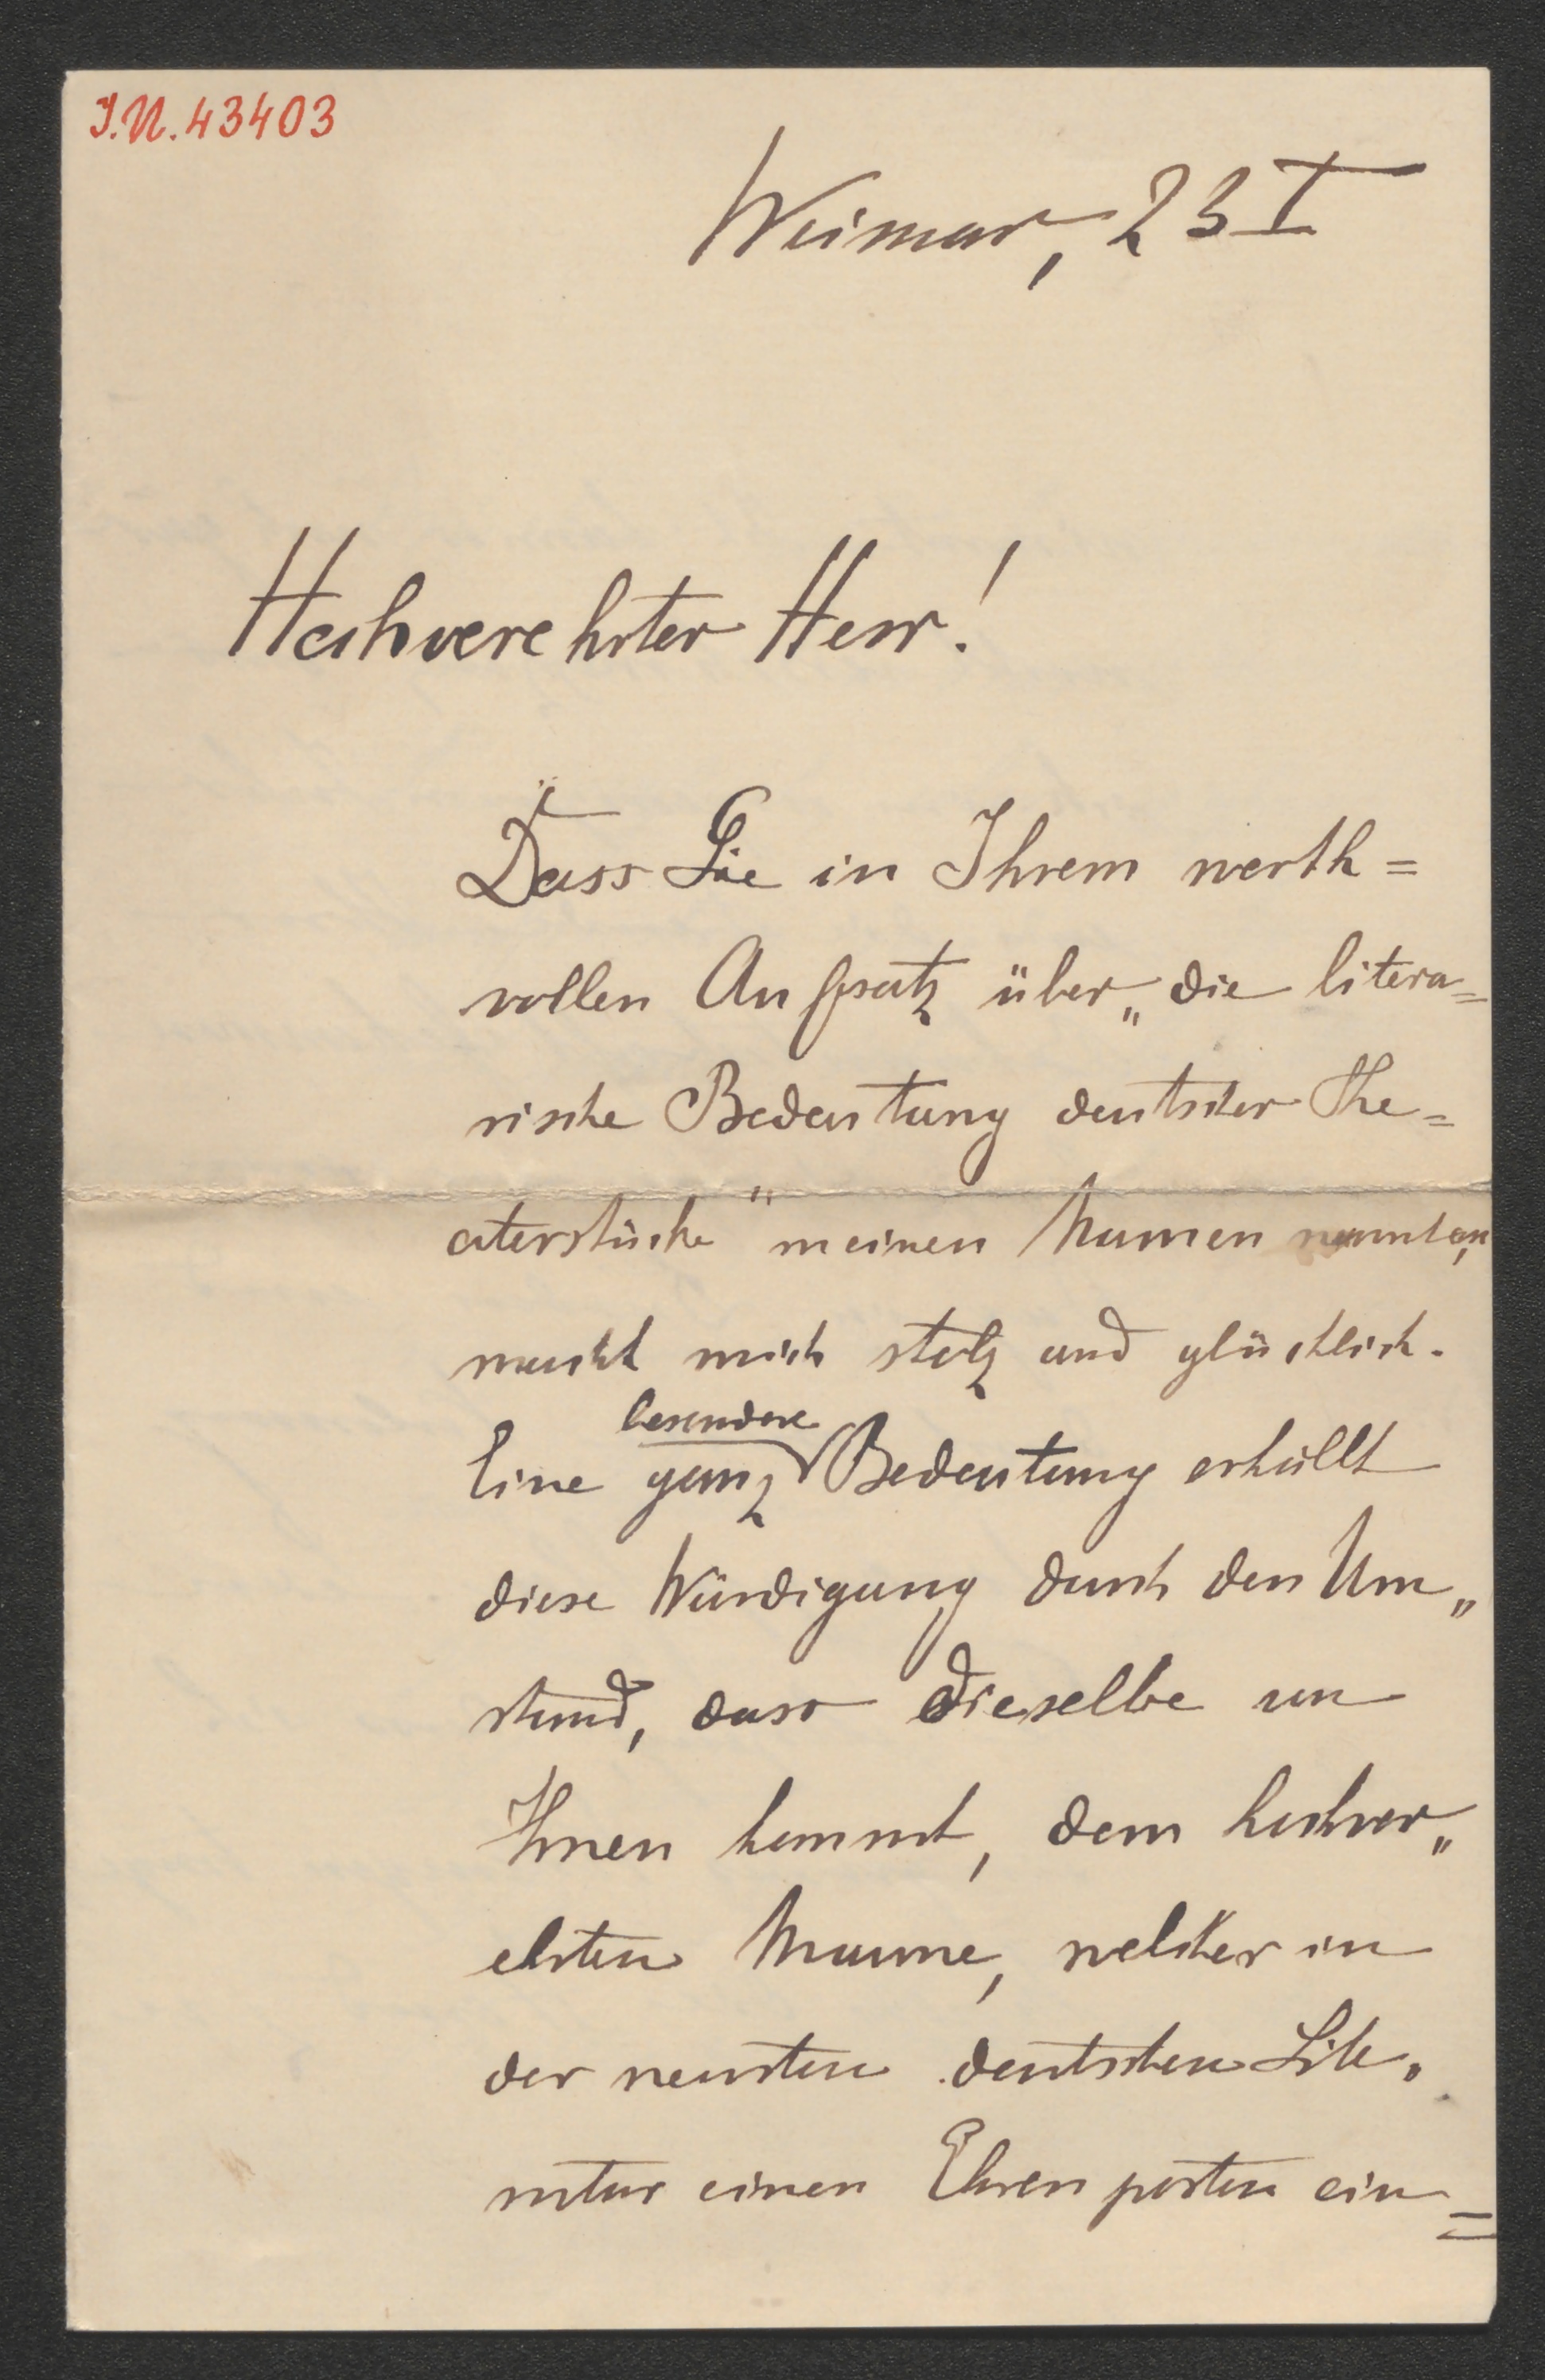 I.N. 43403
Weimar, 23 I
Hochverehrter Herr!
Dass Sie in Ihrem werth=
vollen Aufsatz über „die litera=
rische Bedeutung deutscher The=
aterstücke" meinen Namen nannten,
macht mich stolz und glücklich.
besondere
Eine ganz Bedeutung erhält
diese Würdigung durch den Um„
stand, dass dieselbe von
Ihnen kommt, dem hochver„
ehrten Manne, welcher in
der neusten deutschen Lite„
ratur einen Ehrenposten ein=